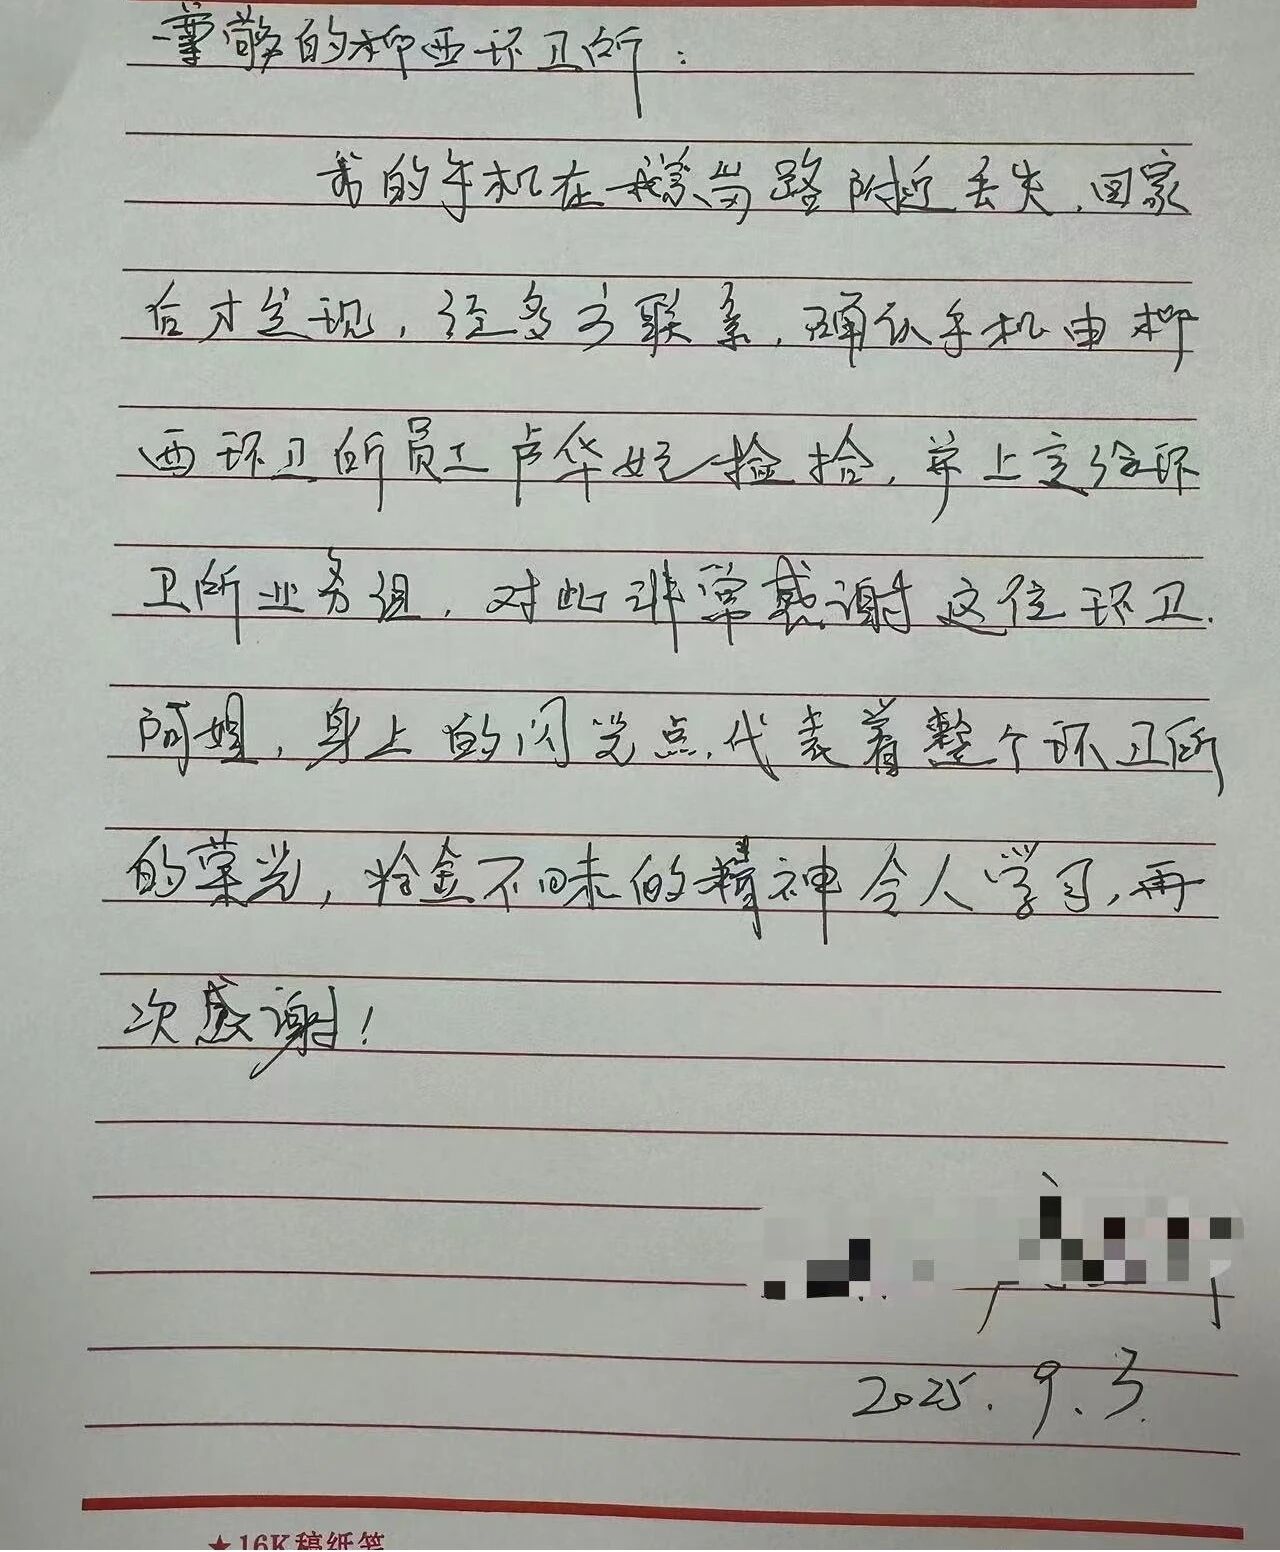 尊敬的柳西环卫所:
我的手机在鹅岗路附近丢失,回家
后才发现,经多方联系,确认手机由柳
西环卫所员工卢华妃捡拾,并上交给环
卫所业务组,对此非常感谢这位环卫.
阿姐,身上的闪光点,代表着整个环卫所
的荣光,拾金不昧的精神令人学习,再
次感谢!
2025.9.3
★16K稿纸笺